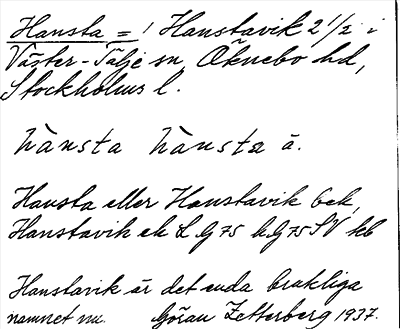 Hansta = / Hanstavik 2 1/2 i
Väster-Tälje sn, Öknebo hd,
Stockholms l.
hànsta hànsta ä.
Hansta eller Hanstavik bek,
Hanstavik ek L G75 h.G75 SV kb
Hanstavik är det enda brukliga
namnet nu. Göran Zetterberg 1937.